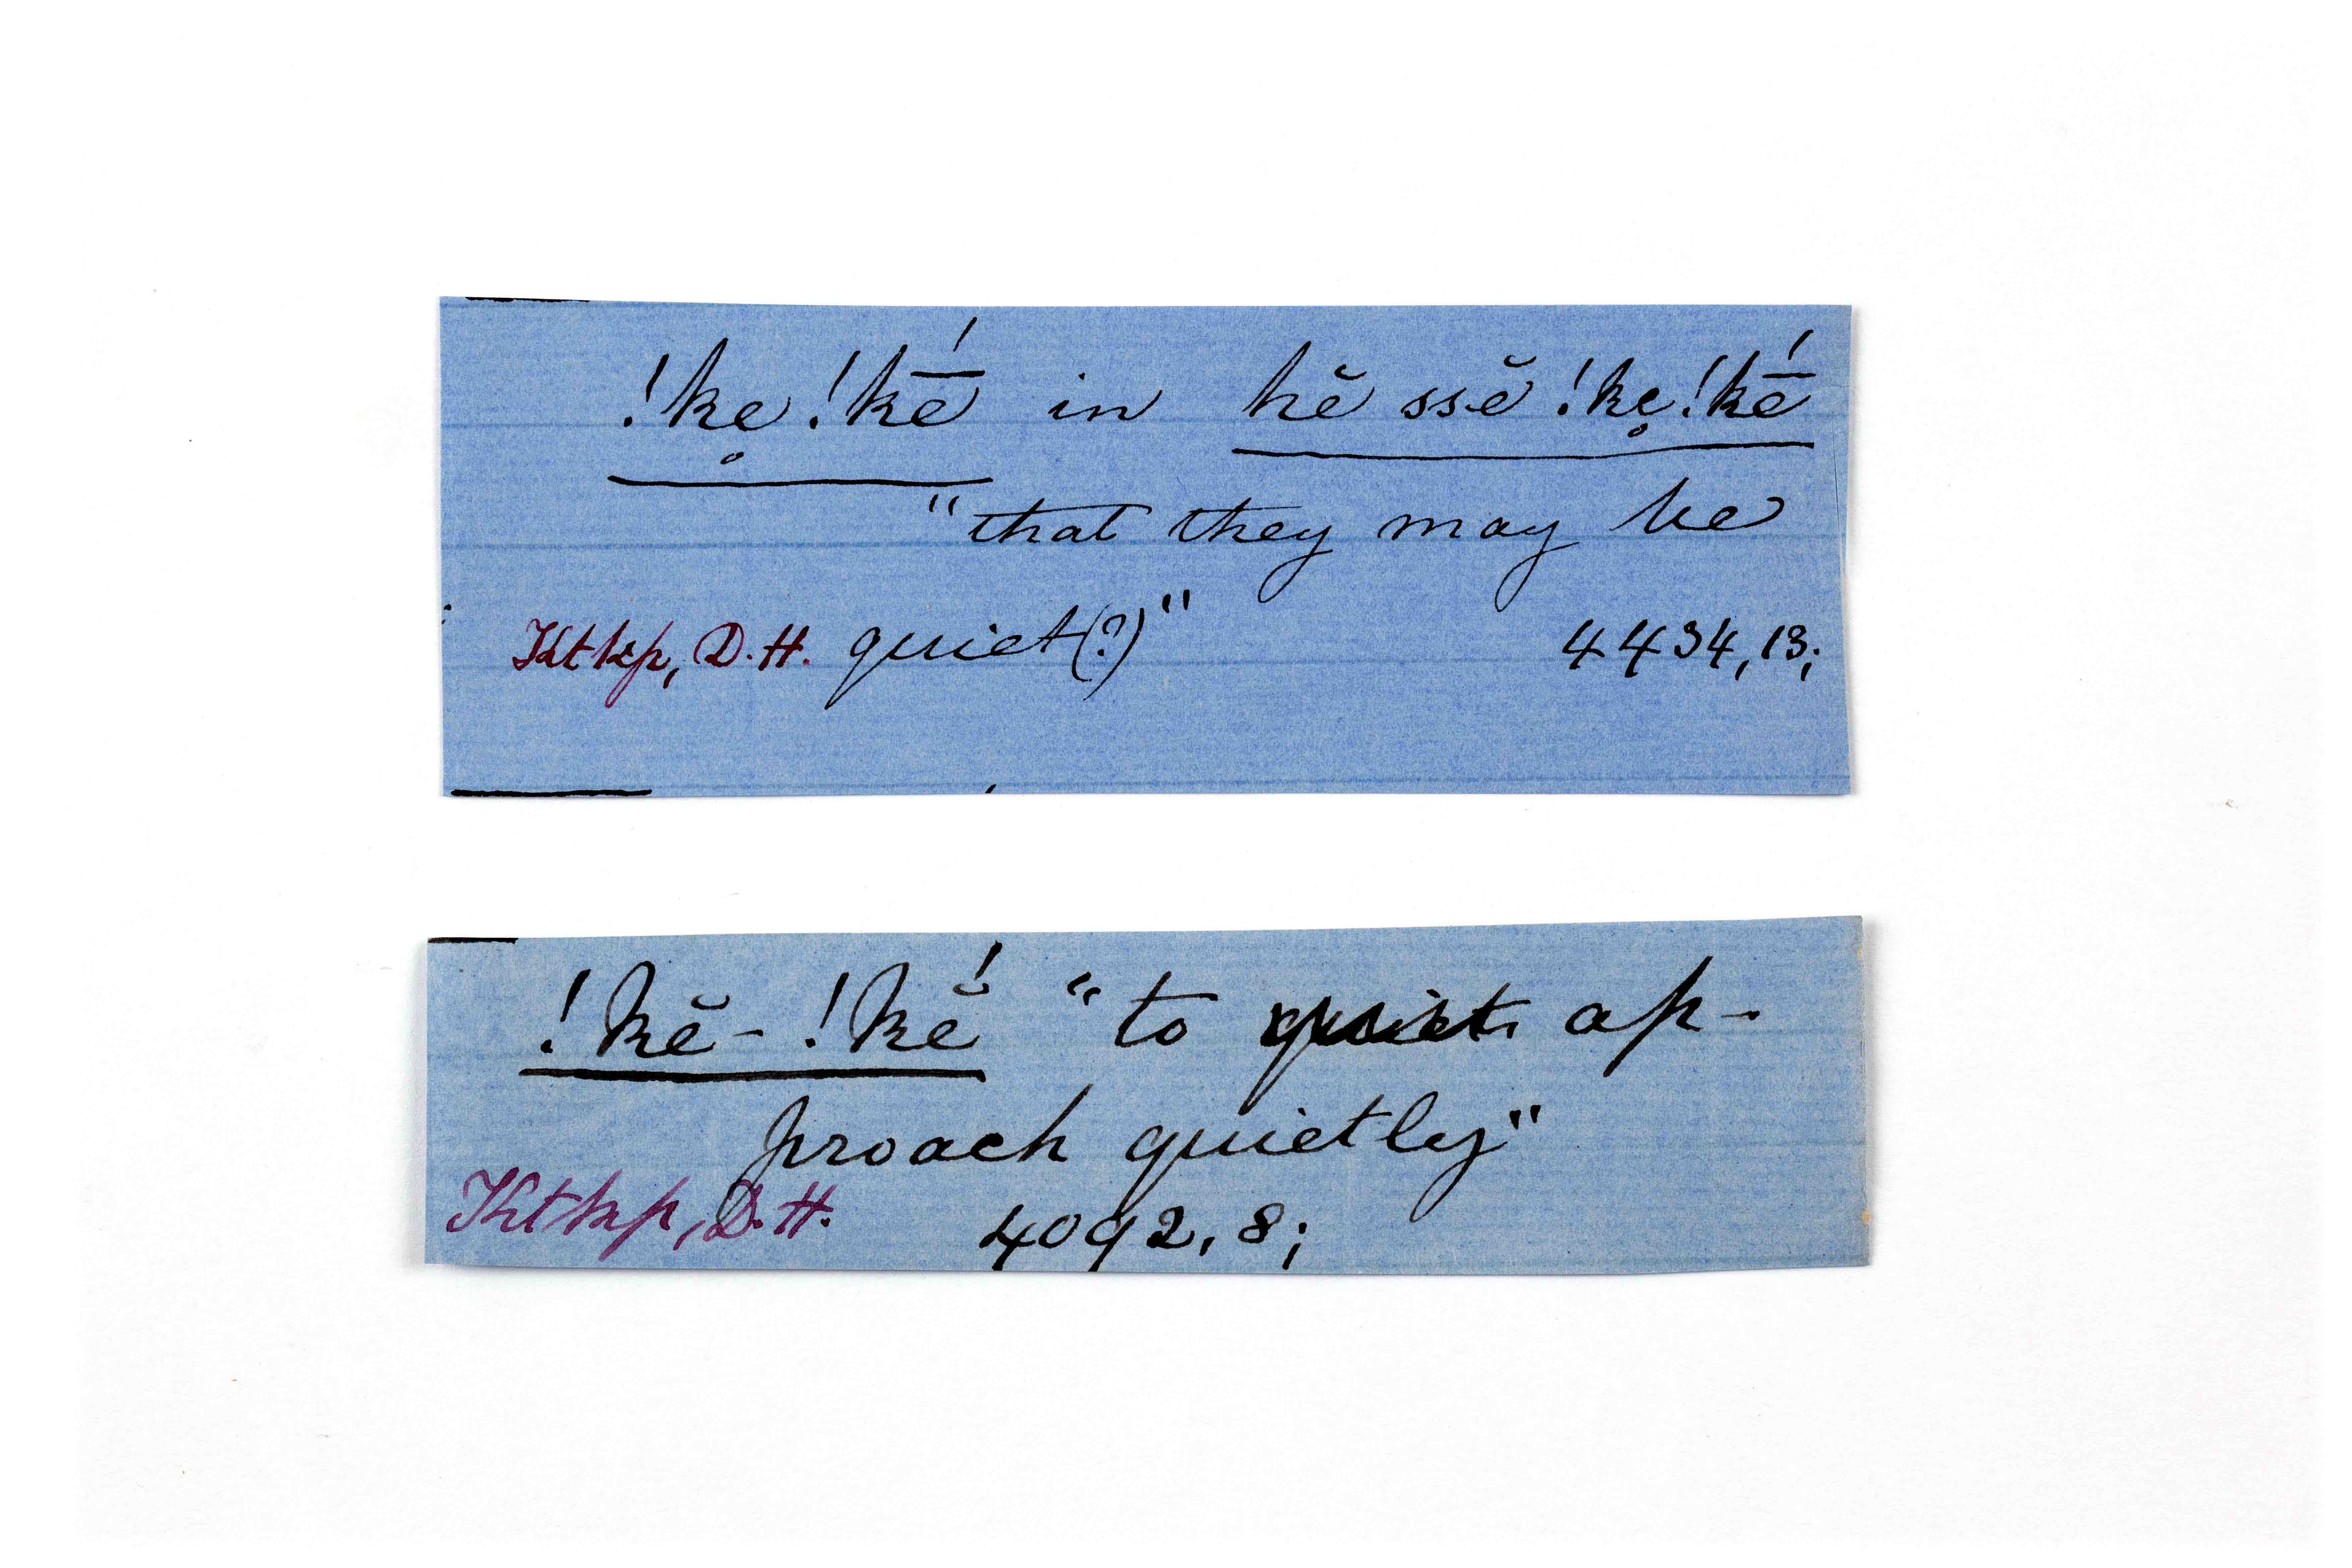 !kẹ!kḗ in hĕ ssĕ !kẹ!kḗ
"that they may be
Ktkp, D.H. quiet(?)" 4434,13;
!kĕ-!kĕ́ "to quiet ap-
proach quietly"
Ktkp, D.H. 4092,8;